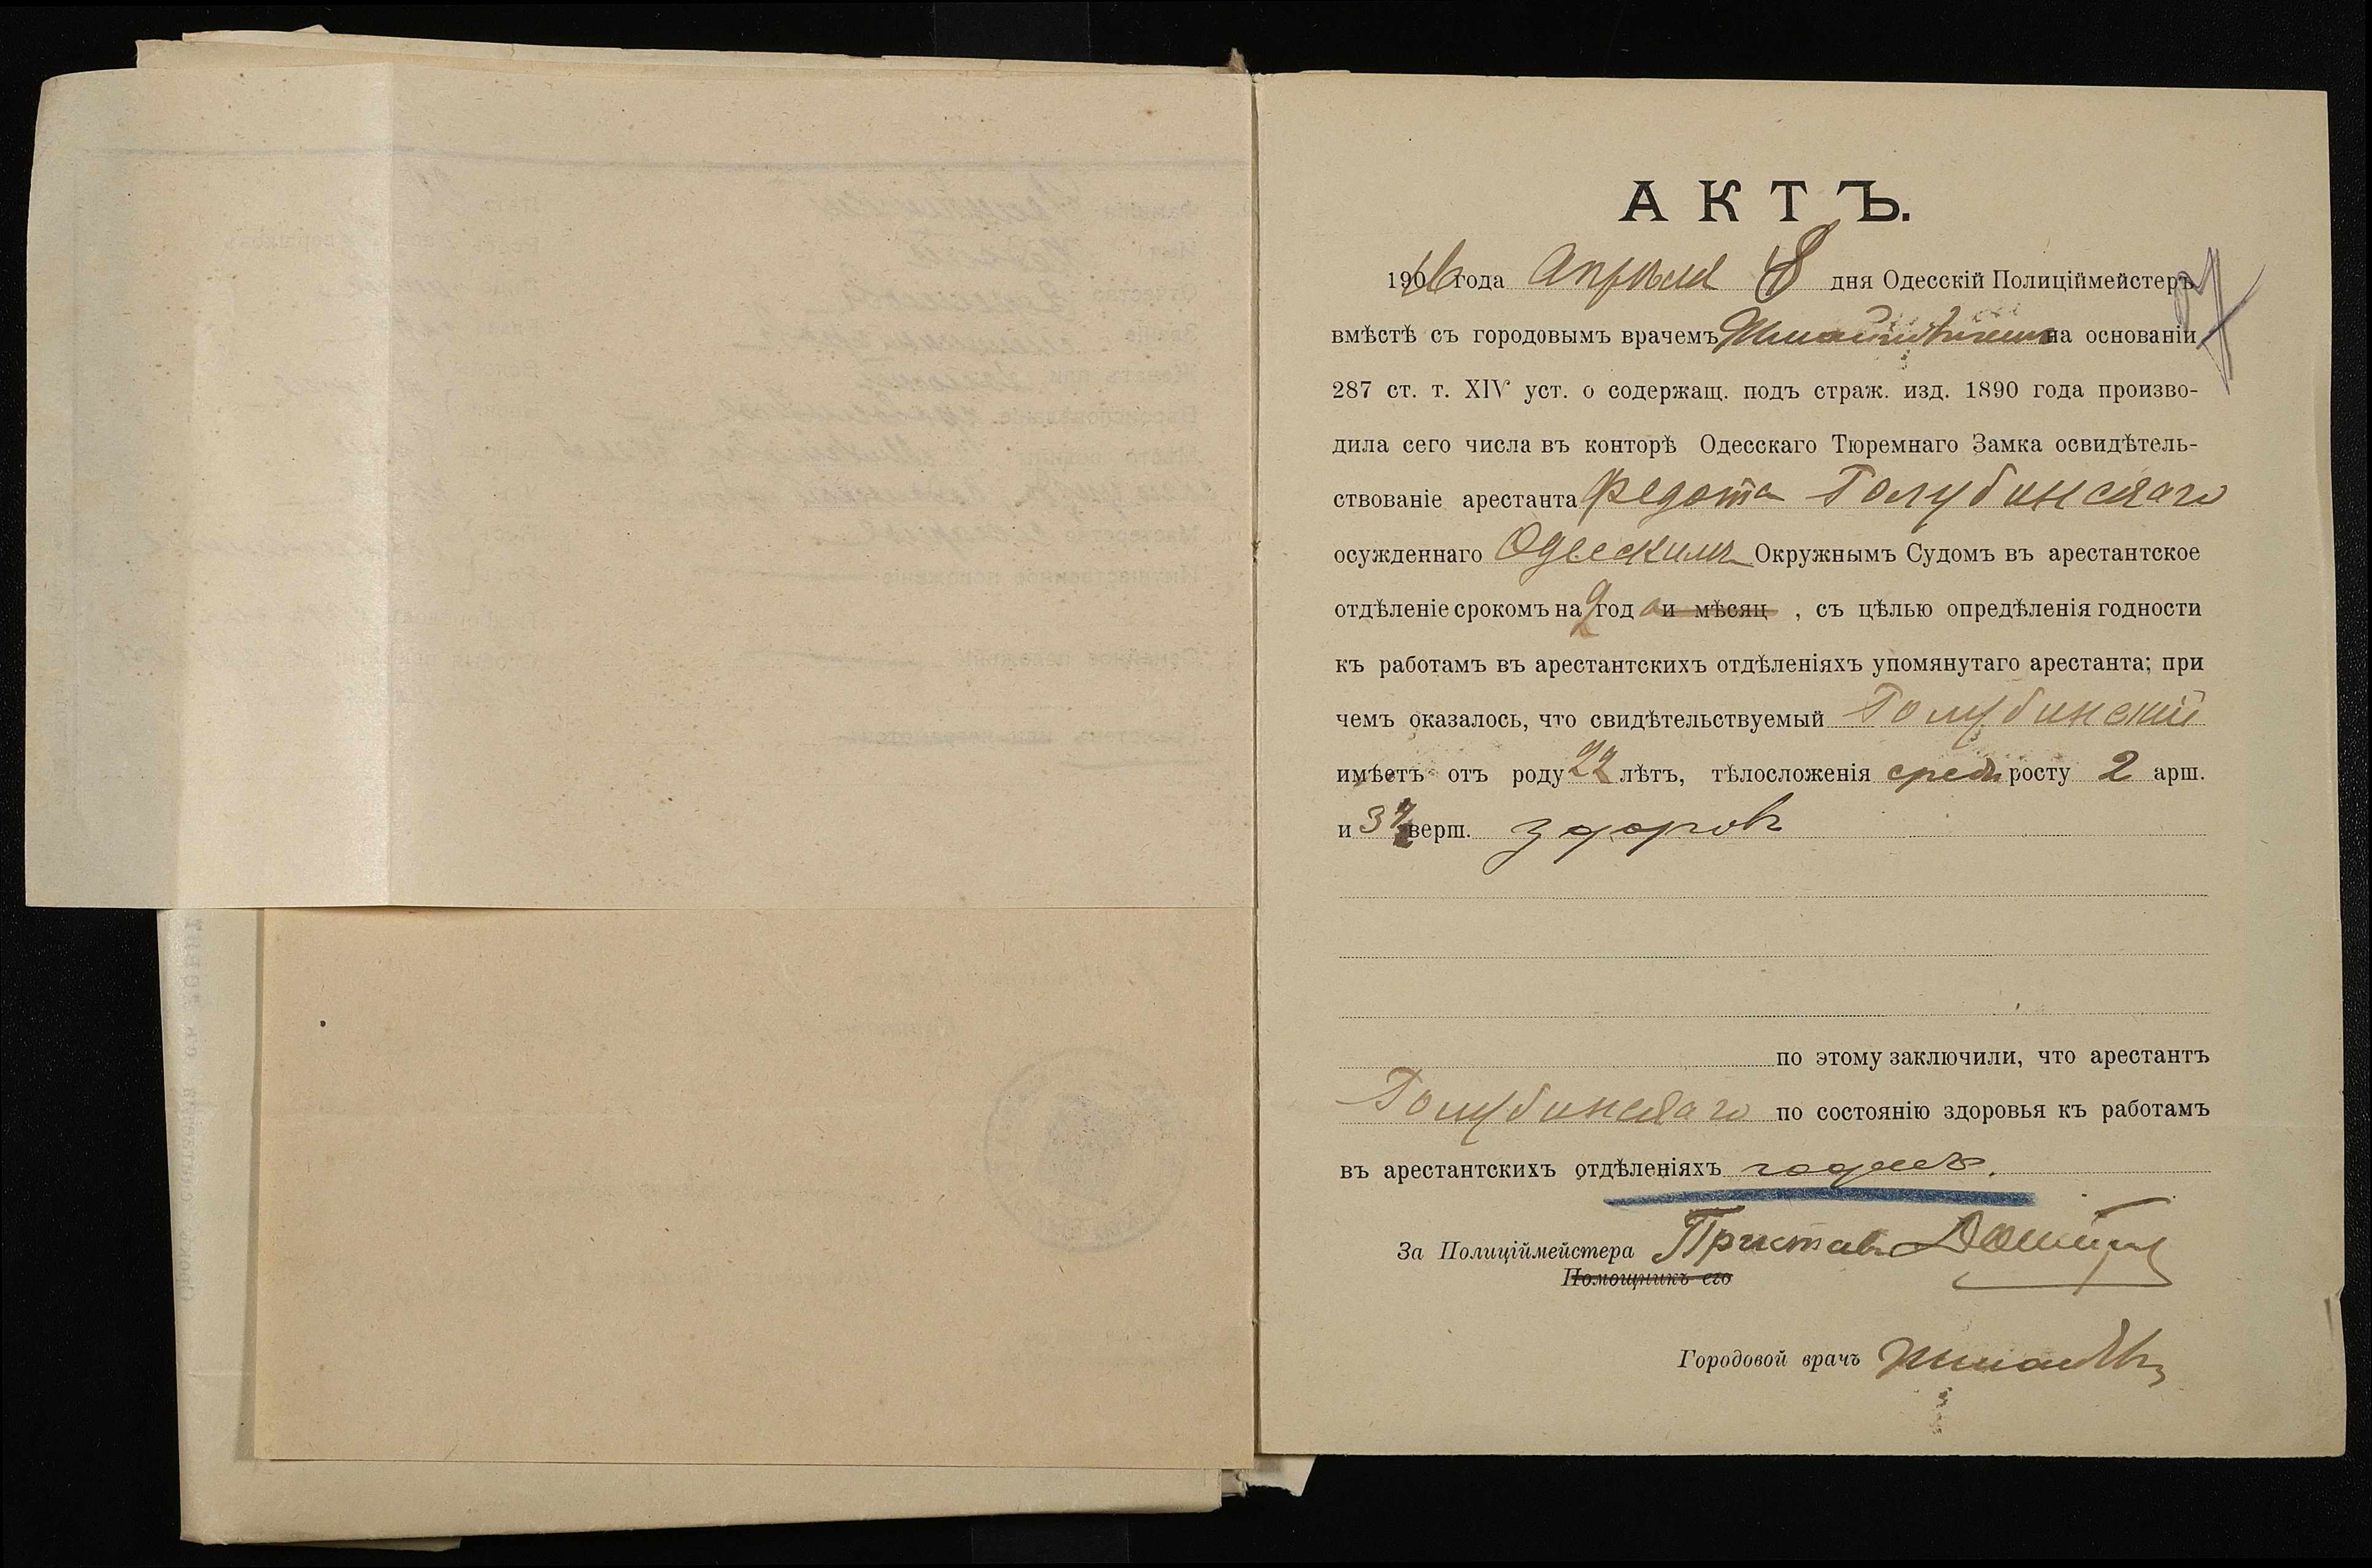 АКТЪ.
года Апрѣля 8 дня Одесскій Полиціймейстеръ
вмѣстѣ съ городовымъ врачемъ на основаніи
287 ст. т. XIV уст. о содержащ. подъ страж. изд. 1890 года произво-
дила сего числа въ конторѣ Одесскаго Тюремнаго Замка освидѣтель-
ствованіе арестанта Федота Голубинскаго
осужденнаго Одесскимъ Окружнымъ Судомъ въ арестантское
отдѣленіе срокомъ на 2 года и мѣсяц , съ цѣлью опредѣленія годности
къ работамъ въ арестантскихъ отдѣленіяхъ упомянутаго арестанта; при
чемъ оказалось, что свидѣтельствуемый Голубинскій
имѣетъ отъ роду 22 лѣтъ, тѣлосложенія средн росту 2 арш.
и верш. здоровъ
по этому заключили, что арестантъ
Голубинскаго по состоянію здоровья къ работамъ
въ арестантскихъ отдѣленіяхъ годенъ.
За Полиціймейстера Приставъ
Помощникъ его
Городовой врачъ